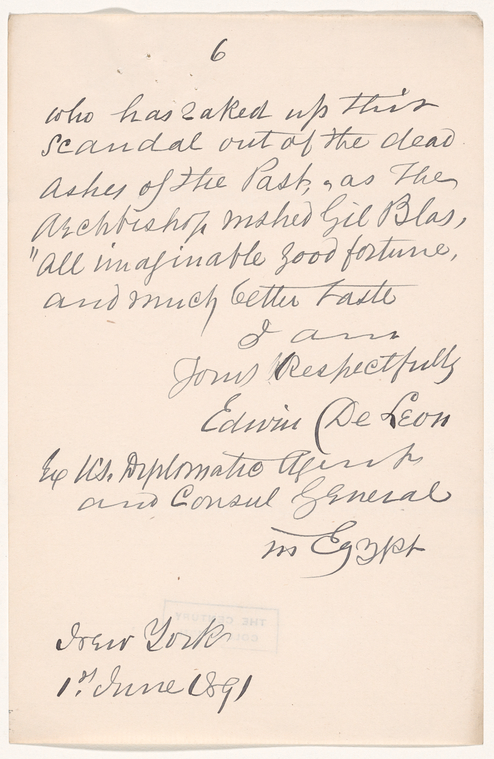 6
who has raked up this
scandal out of the dead
ashes of the Past, as the
Archbishop wished Gil Blas,
"all imaginable good fortune,
and much better taste
I am
Yours Respectfully
Edwin De Leon
Ex U.S. Diplomatic Agent
and Consul General
in Egypt
THE CENTURY
New York
1st June 1891